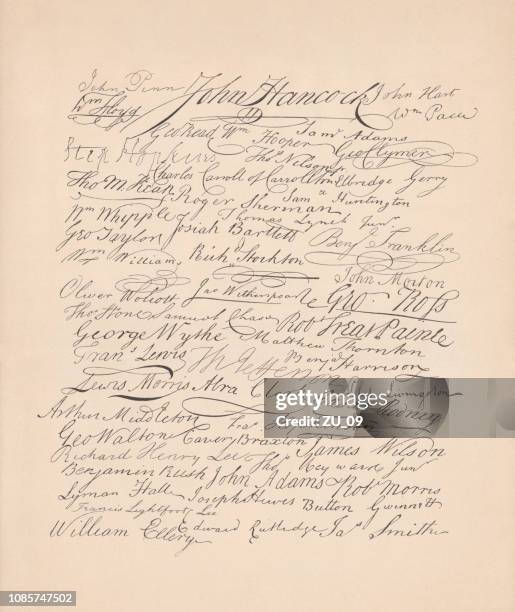 John Penn John Hancock John Hart
Wm Floyd Wm Paca
Geo Read Wm Hooper Saml Adams
Step Hopkins Thos Nelson jr Geo Clymer
Charles Carroll of Carrollton Elbridge Gerry
Tho M:Kean Roger Sherman Saml Huntington
Wm Whipple Thomas Lynch Junr
Geo Taylor Josiah Bartlett Benj Franklin
Wm Williams Richd Stockton
John Morton
Oliver Wolcott Jno Witherspoon Geo. Ross
Thos Stone Samuel Chase Robt Treat Paine
George Wythe Matthew Thornton
Frans Lewis Th Jefferson Benja Harrison
Lewis Morris Abra Livingston
Rodney
Arthur Middleton
Geo Walton Carter Braxton James Wilson
Richard Henry Lee Thos Heyward Junr
Benjamin Rush John Adams Robt Morris
Lyman Hall Joseph Hewes Button Gwinnett
Francis Lightfoot Lee
William Ellery Edward Rutledge Jas Smith
Credit: ZU_09
1085747502